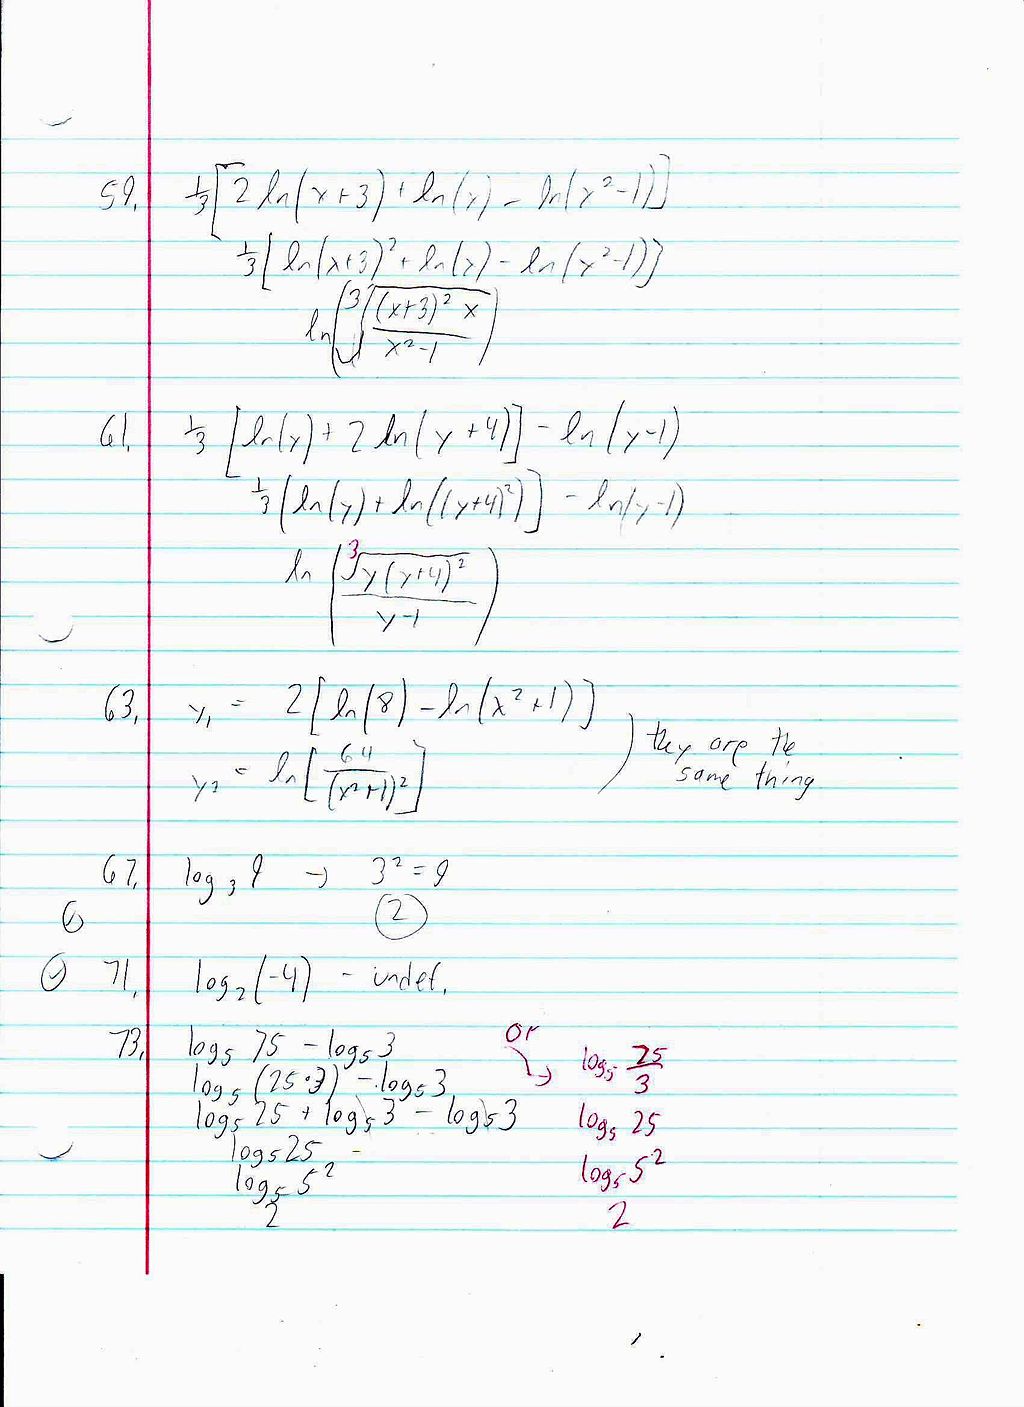 59. 1/3[2 ln(x+3) + ln(x) - ln(x²-1)]
1/3[ln(x+3)² + ln(x) - ln(x²-1)]
ln(∛((x+3)² x / x²-1))
61. 1/3 [ln(y) + 2 ln(y+4)] - ln(y-1)
1/3 [ln(y) + ln((y+4)²)] - ln(y-1)
ln(∛(y(y+4)²) / y-1)
63. y₁ = 2[ln(8) - ln(x²+1)]
y₂ = ln[64 / (x²+1)²]
they are the
same thing
67. log₃ 9 → 3² = 9
2
71. log₂(-4) - undef.
73. log₅ 75 - log₅ 3
log₅ (25·3) - log₅ 3
log₅ 25 + log₅ 3 - log₅ 3
log₅ 25 -
log₅ 5²
2
or → log₅ 75/3
log₅ 25
log₅ 5²
2